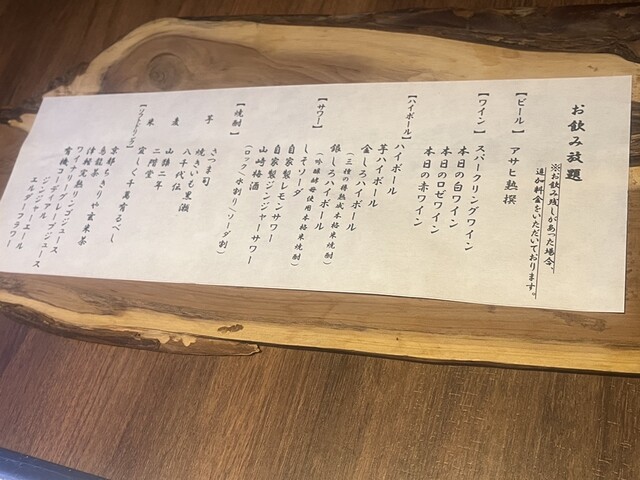 お飲み放題
※お飲み残しがあった場合、
追加料金をいただいております。
【ビール】 アサヒ熟撰
【ワイン】 スパークリングワイン
本日の白ワイン
本日のロゼワイン
本日の赤ワイン
【ハイボール】 ハイボール
芋ハイボール
金しろハイボール
（三種の樽熟成本格米焼酎）
銀しろハイボール
（吟醸酵母使用本格米焼酎）
【サワー】 しそソーダ
自家製レモンサワー
自家製ジンジャーサワー
山崎梅酒
【焼酎】 （ロック/水割り/ソーダ割）
芋 さつま司
焼きいも黒瀬
麦 八千代伝
山猿
二階堂
米
【ソフトドリンク】
京都ちきりや玄米茶
烏龍茶
津軽完熟リンゴジュース
ワイナリーグレープジュース
有機コーディアル
ジンジャーエール
エルダーフラワー